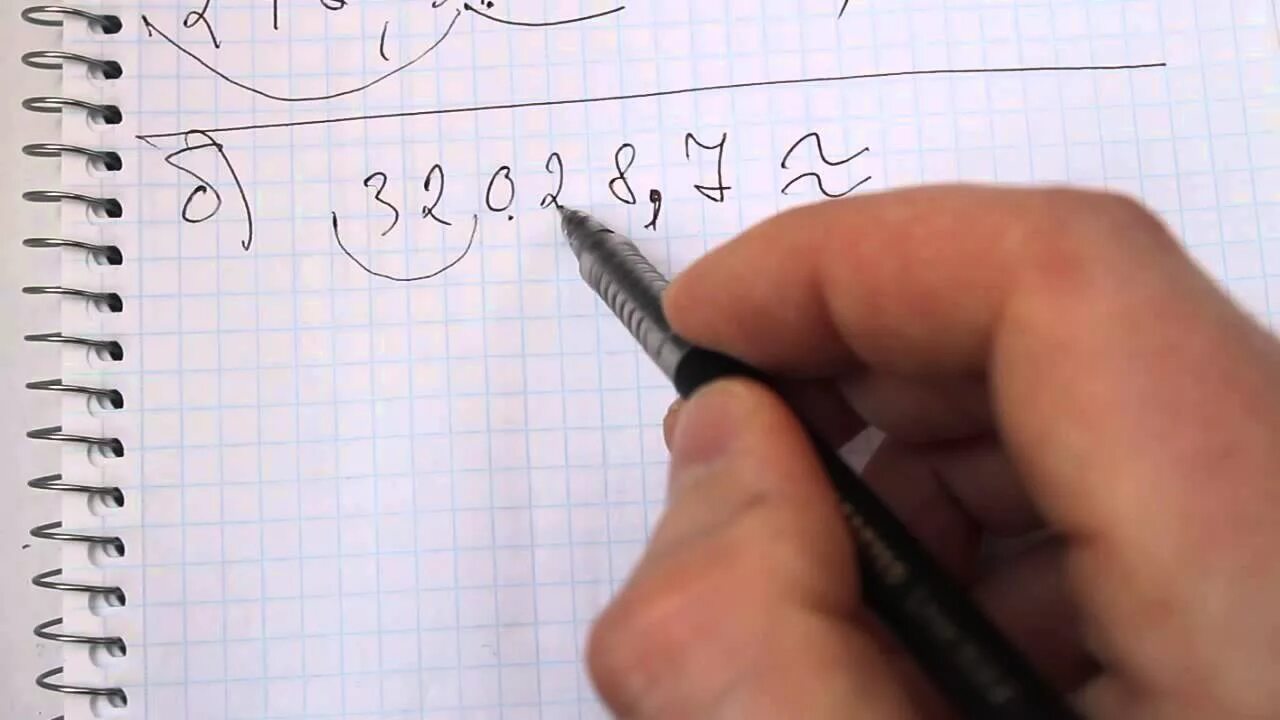 б) 32028,7 ≈